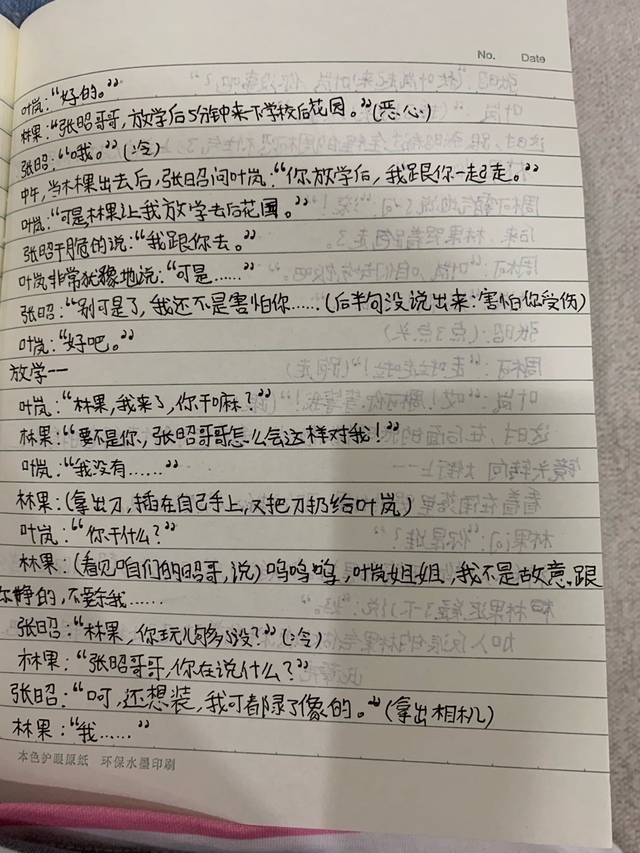 No. Date
叶岚:“好的。”
林果:“张昭哥哥,放学后5分钟来下学校后花园。”(恶心)
张昭:“哦。”(冷)
中午,当林果出去后,张昭问叶岚:“你放学后,我跟你一起走。”
叶岚:“可是林果让我放学去后花园。”
张昭干脆的说:“我跟你去。”
叶岚非常犹豫地说:“可是……”
张昭:“别可是了,我还不是害怕你……(后半句没说出来:害怕你受伤)
叶岚:“好吧。”
放学——
叶岚:“林果,我来了,你干嘛?”
林果:“要不是你,张昭哥哥怎么会这样对我!”
叶岚:“我没有……”
林果:(拿出刀,插在自己手上,又把刀扔给叶岚)
叶岚:“你干什么?”
林果:(看见咱们的昭哥,说)呜呜呜,叶岚姐姐,我不是故意跟
你挣的,不要杀我……
张昭:“林果,你玩儿够没?”(冷)
林果:“张昭哥哥,你在说什么?”
张昭:“呵,还想装,我可都录了像的。”(拿出相机)
林果:“我……”
本色护眼原纸 环保水墨印刷